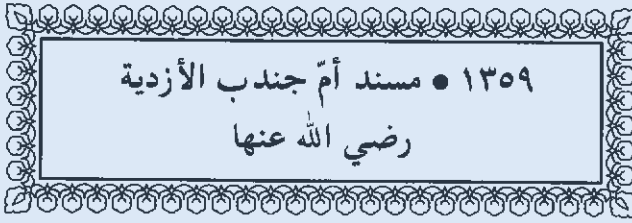 ١٣٥٩ • مسند أمّ جندب الأزدية
رضي الله عنها